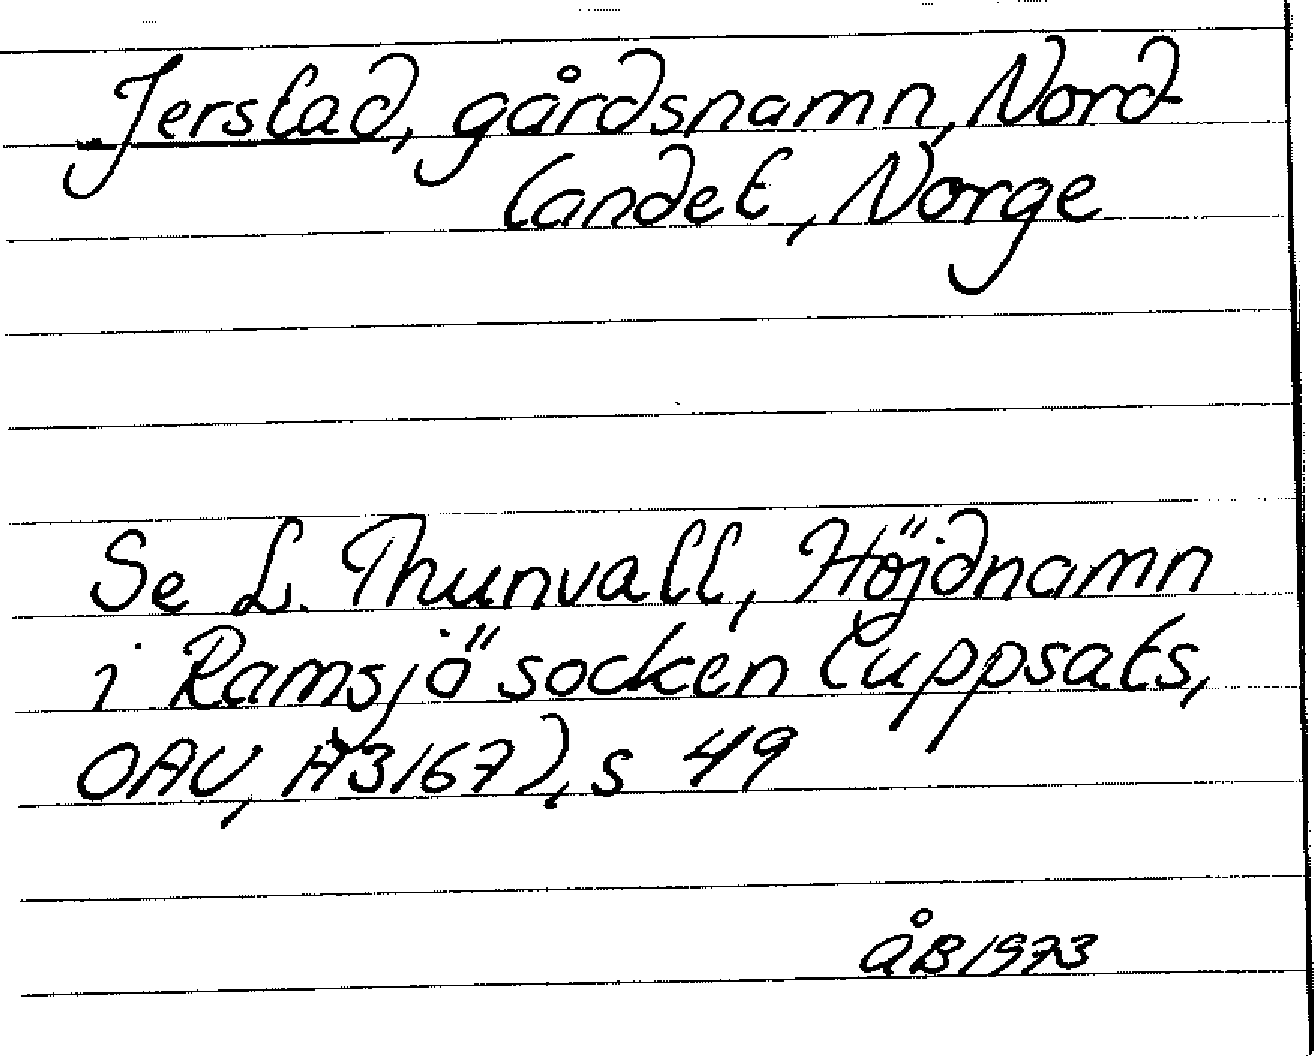 Jerstad, gårdsnamn, Nord-
landet, Norge
Se L. Thunvall, Höjdnamn
i Ramsjö socken (uppsats,
OAU, A3167), s 49
ÅB 1973